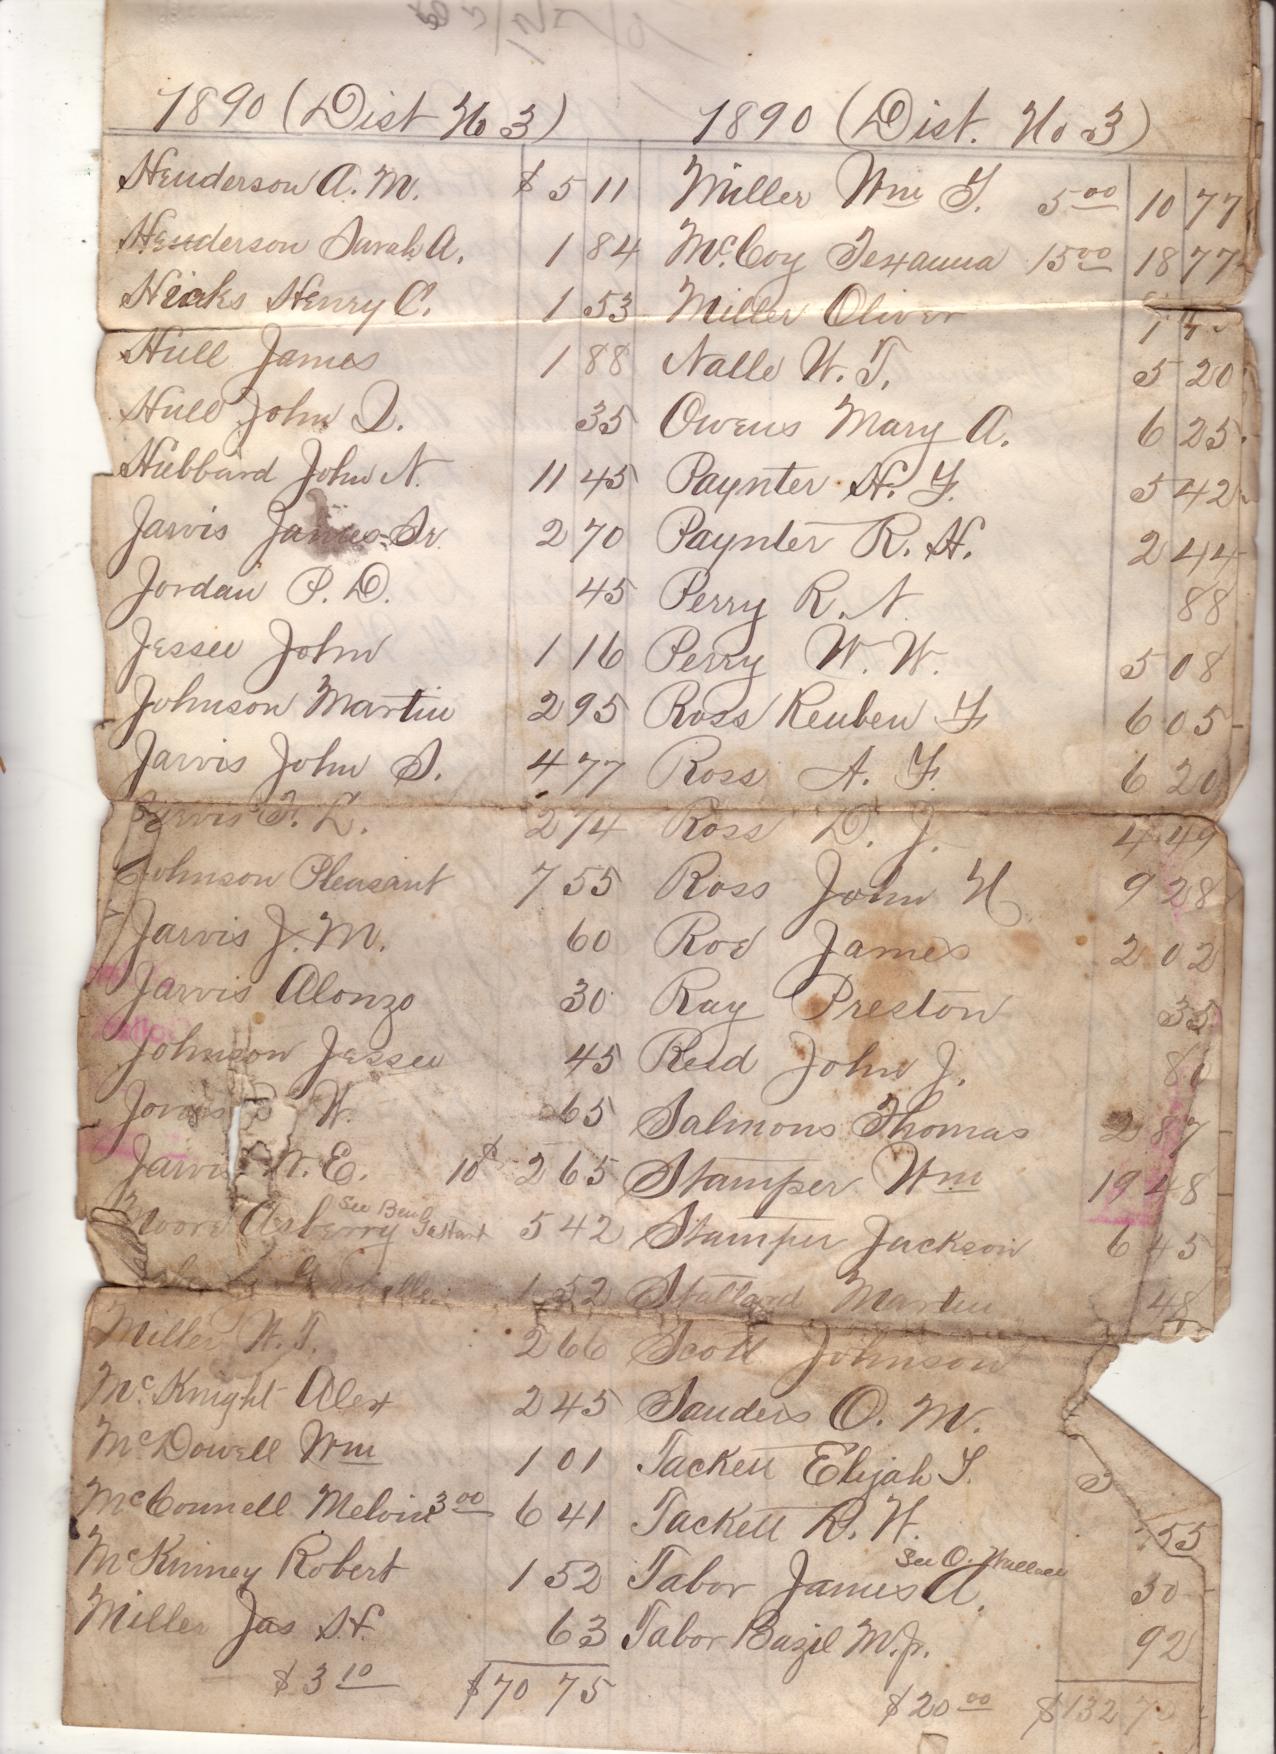 1890 (Dist No 3)
Henderson A. M. $ 5 11
Henderson Sarah A. 1 84
Hicks Henry C. 1 53
Hull James 1 88
Hull John Q. 35
Hubbard John N. 11 45
Jarvis James Sr. 2 70
Jordan P. D. 45
Jessee John 1 16
Johnson Martin 2 95
Jarvis John S. 4 77
Jarvis F. L. 2 74
Johnson Pleasant 7 55
Jarvis J. M. 60
Jarvis Alonzo 30
Johnson Jessee 45
W. 65
Jarvis W. E. 10¢ 2 65
Moore Asberry See Ben 5 42
1 52
Miller W. T. 2 66
McKnight Alex 2 45
McDowell Wm 1 01
McConnell Melvin 3 00 6 41
McKinney Robert 1 52
Miller Jas H. 63
$ 3 10 $ 70 75
1890 (Dist. No 3)
Miller Wm T. 5 00 10 77
McCoy Texanna 15 00 18 77
Miller Oliver 1
Nalle W. T. 5 20
Owens Mary A. 6 25
Paynter H. F. 5 42
Paynter R. H. 2 44
Perry R. N. 88
Perry W. W. 5 08
Ross Reuben F 6 05
Ross A. F. 6 20
Ross D. J. 4 49
Ross John H 9 28
Roe James 2 02
Ray Preston 35
Reid John J.
Salmons Thomas 2 87
Stamper Wm 19 48
Stamper Jackson 6 45
Stallard Martin 48
Scott Johnson
Sanders O. M.
Tackett Elijah S.
Tackett R. W. 55
See O. Wallace
Tabor James A. 30
Tabor Bazil M. Jr. 92
$ 20 00 $ 132 7